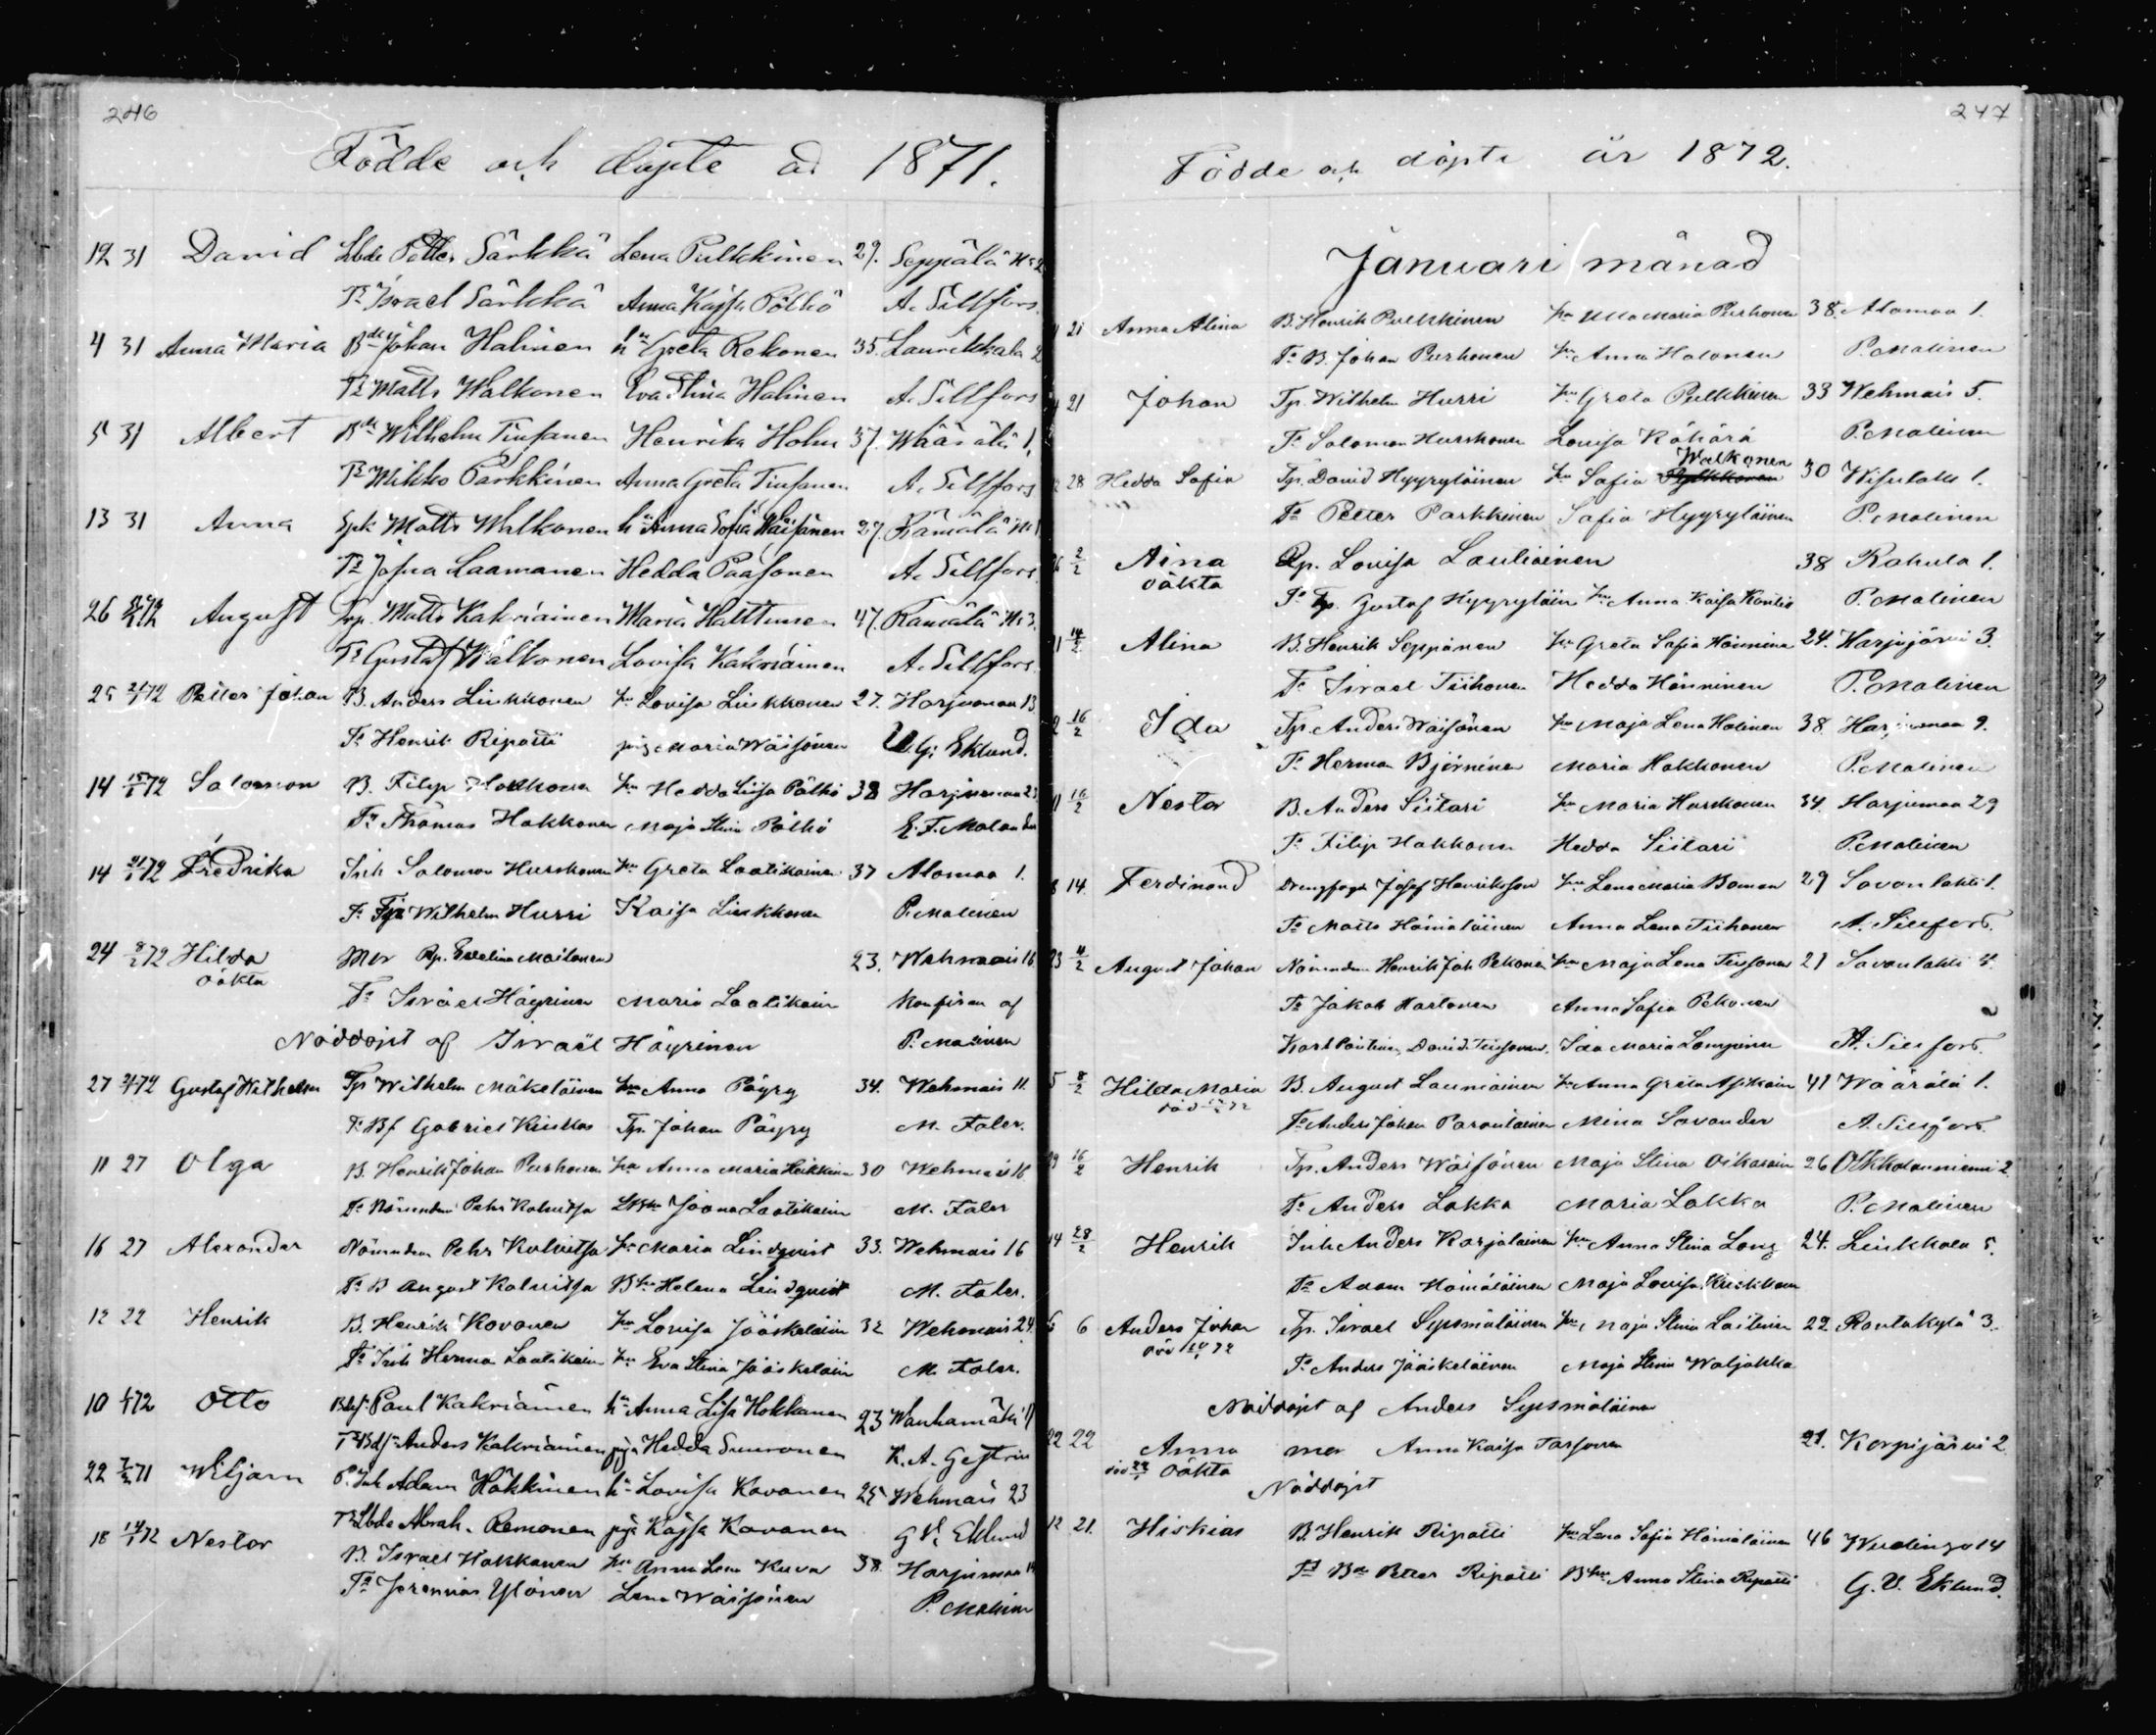 246
Födde och döpte år 1871.
12 31 David Lbde Petter Särkkä Lena Pulkkinen 29. Seppälä No 2
Tn Israel Särkkä Anna Kajsa Pöllö A. Sillfors.
4 31 Anna Maria Bde Johan Halinen hn Greta Rekonen 35. Laurikkala 2
Tn Matts Walkonen Eva Stina Halinen A. Sillfors
5 31 Albert Bde Wilhelm Tiusanen Henrika Holm 37. Wäärälä 1.
Tn Mikko Parkkinen Anna Greta Tiusanen A. Sillfors
13 31 Anna Spk Matts Walkonen hn Anna Sofia Wäisänen 27. Ramälä No 1
Tn Josua Laamanen Hedda Paasonen A. Sillfors.
26 August Trp. Matts Kakriainen Maria Halttunen 47. Ramälä No 3.
Tn Gustaf Walkonen Lovisa Kakriainen A. Sillfors.
25 2/1 72 Petter Johan B. Anders Liukkonen hn Lovisa Liukkonen 27. Harjumaa 13
Tn Henrik Ripatti pig Maria Wäisänen G. Eklund.
14 15/1 72 Salomon B. Filip Hokkonen hn Hedda Lisa Pöllö 38 Harjumaa 23
Tn Thomas Hokkonen Maja Stina Pöllö E. F. Molander
14 21/1 72 Fredrika Inh Salomon Hurskonen hn Greta Laatikainen 37 Alamaa 1.
Tn Tp Wilhelm Hurri Kaisa Liukkonen P. Malinen
24 8/2 72 Hilda Mor Pp. Evelina Moilanen 23. Wehmais 16
oäkta
Tn Israel Häyrinen Maria Laatikain Konfiran af
Nöddöpt af Israël Häyrinen P. Malinen
27 2/1 72 Gustaf Wilhelm Tp Wilhelm Mäkeläinen hn Anna Pöyry 34. Wehmais 11.
Tn Bf Gabriel Kiiskes Tp. Johan Pöyry M. Faler.
11 27 Olga B. Henrik Johan Purhonen hn Anna Maria Heikkinen 30 Wehmais 16
Tn Nämndem Pehr Kolvitsa Joana Laatikain M. Faler
16 27 Alexander Nämndem Pehr Kolvitsa hn Maria Lindqvist 33. Wehmais 16
Tn B August Kolvitsa Bhn Helena Lindqvist M. Faler.
12 22 Henrik B. Henrik Kovanen hn Lovisa Jääskeläin 32 Wehmais 24.
Tn Inh Herman Laatikain hn Eva Stina Jääskeläin M. Faler.
10 72 Otto Bdsn Paul Kakriainen hn Anna Lisa Hokkanen 23 Wanhamäki 11
Tn Bdsn Anders Kakriainen piga Hedda Suuronen K. A. Gestrin
22 71 Wiljam P. Inh Adam Häkkinen hn Lovisa Kovanen 25 Wehmais 23
Tn Lbde Abrah. Remonen piga Kajsa Kovanen G. V. Eklund
18 14/1 72 Nestor B. Israel Hokkanen hn Anna Lena Kuva 38. Harjumaa 14
Tn Jeremias Ylönen Lena Wäisänen P. Malinen
247
Födde och döpte år 1872.
Januari månad
21 Anna Alina B. Henrik Pulkkinen hn Ulla Maria Purhonen 38. Alamaa 1.
Tn B. Johan Purhonen hn Anna Halonen P. Malinen
21 Johan Tp. Wilhelm Hurri hn Greta Pulkkinen 33 Wehmais 5.
Tn Salomon Hurskonen Lovisa Kähärä P. Malinen
Walkonen
28 Hedda Sofia Tp. David Hyyryläinen hn Sofia 30 Wisulaks 1.
Tn Petter Parkkinen Sofia Hyyryläinen P. Malinen
2/2 Aina Pp. Lovisa Lautiainen 38 Rahula 1.
oäkta
Tn Tp. Gustaf Hyyryläin hn Anna Kaisa Kontio P. Malinen
14/2 Alina B. Henrik Seppänen hn Greta Sofia Hänninen 24. Harjujärvi 3.
Tn Israel Tiihonen Hedda Hänninen P. Malinen
16/2 Ida Tp. Anders Wäisänen hn Maja Lena Halinen 38 Harjumaa 9.
Tn Herman Björninen Maria Hokkonen P. Malinen
16/2 Nestor B. Anders Siitari hn Maria Hurskonen 34. Harjumaa 29
Tn Filip Hokkonen Hedda Siitari P. Malinen
14. Ferdinand Drengfogd Josef Henriksson hn Lena Maria Boman 29 Savonlahti 1.
Tn Matts Hämäläinen Anna Lena Tiihonen A. Sillfors.
23 4/2 August Johan Nämndem Henrik Joh Pekonen hn Maja Lena Tiusanen 21 Savonlahti 4.
Tn Jakob Hartonen Anna Sofia Pekonen
David Tiusanen. Ida Maria A. Sillfors.
5 8/2 Hilda Maria B. August Launiainen hn Anna Greta Asikain 41 Wäärälä 1.
Tn Anders Johan Parantainen Mina Savander A. Sillfors.
16/2 Henrik Tp. Anders Wäisänen Maja Stina Oikarain 26 Olkkolanniemi 2.
Tn Anders Lakka Maria Lakka P. Malinen
14 28/2 Henrik Inh Anders Karjalainen hn Anna Stina Long 24. Leinkkala 5.
Tn Adam Hämäläinen Maja Lovisa
6 Anders Johan Tp. Israel Sysmäläinen hn Maja Stina Laitinen 22 Rantakylä 3.
Tn Anders Jääskeläinen Maja Stina Waljakka
Nöddöpt af Anders Sysmäläinen
22 22 Anna mor Anna Kaisa Tarsonen 21. Korpijärvi 2
oäkta
Nöddöpt
12 21. Hiskias B. Henrik Ripatti hn Lena Sofia Hämäläinen 46 Wuolingo 14
Tn Petter Ripatti Bhn Anna Stina Ripatti G. V. Eklund.